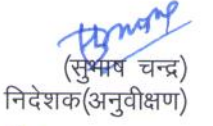 (सुभाष चन्द्र)
निदेशक(अनुवीक्षण)